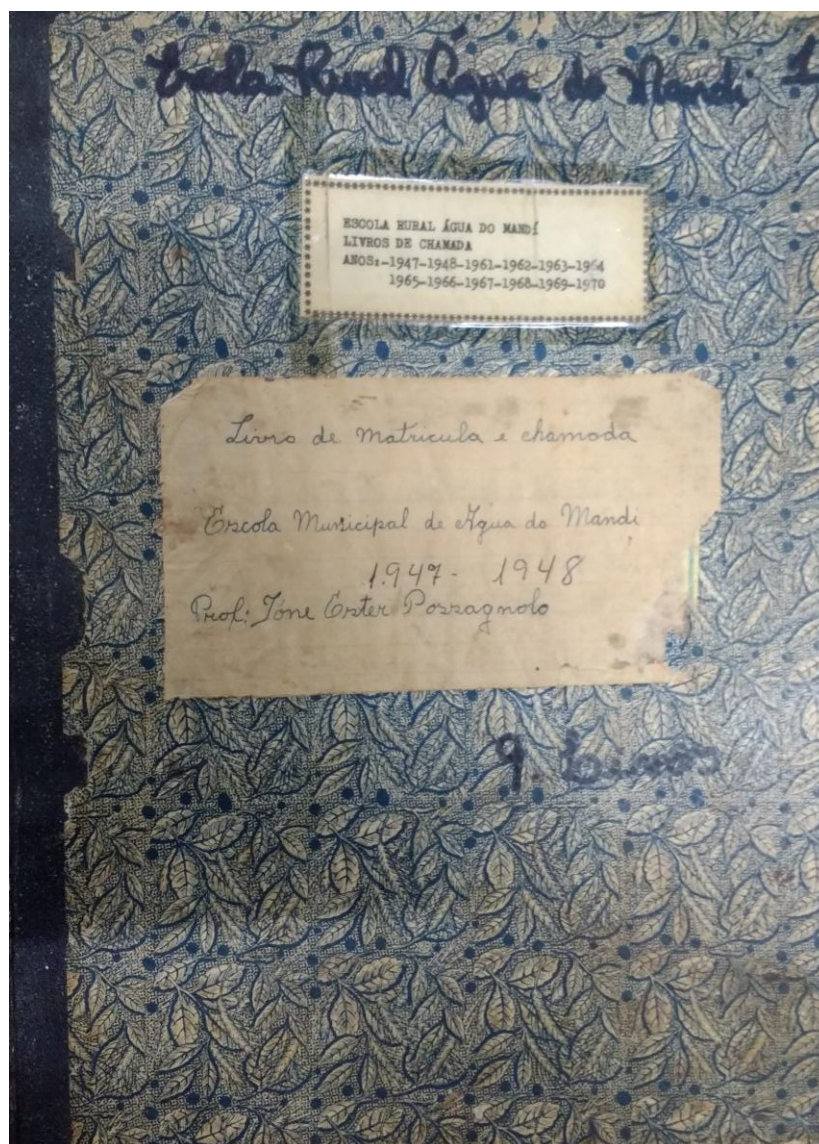 Escola Rural Água do Mandi 1
ESCOLA RURAL ÁGUA DO MANDÍ
LIVROS DE CHAMADA
ANOS:-1947-1948-1961-1962-1963-1964
1965-1966-1967-1968-1969-1970
Livro de matricula e chamada
Escola Municipal de Agua do Mandi
1.947- 1948
Prof: Ione Ester Possagnolo
9. Livros